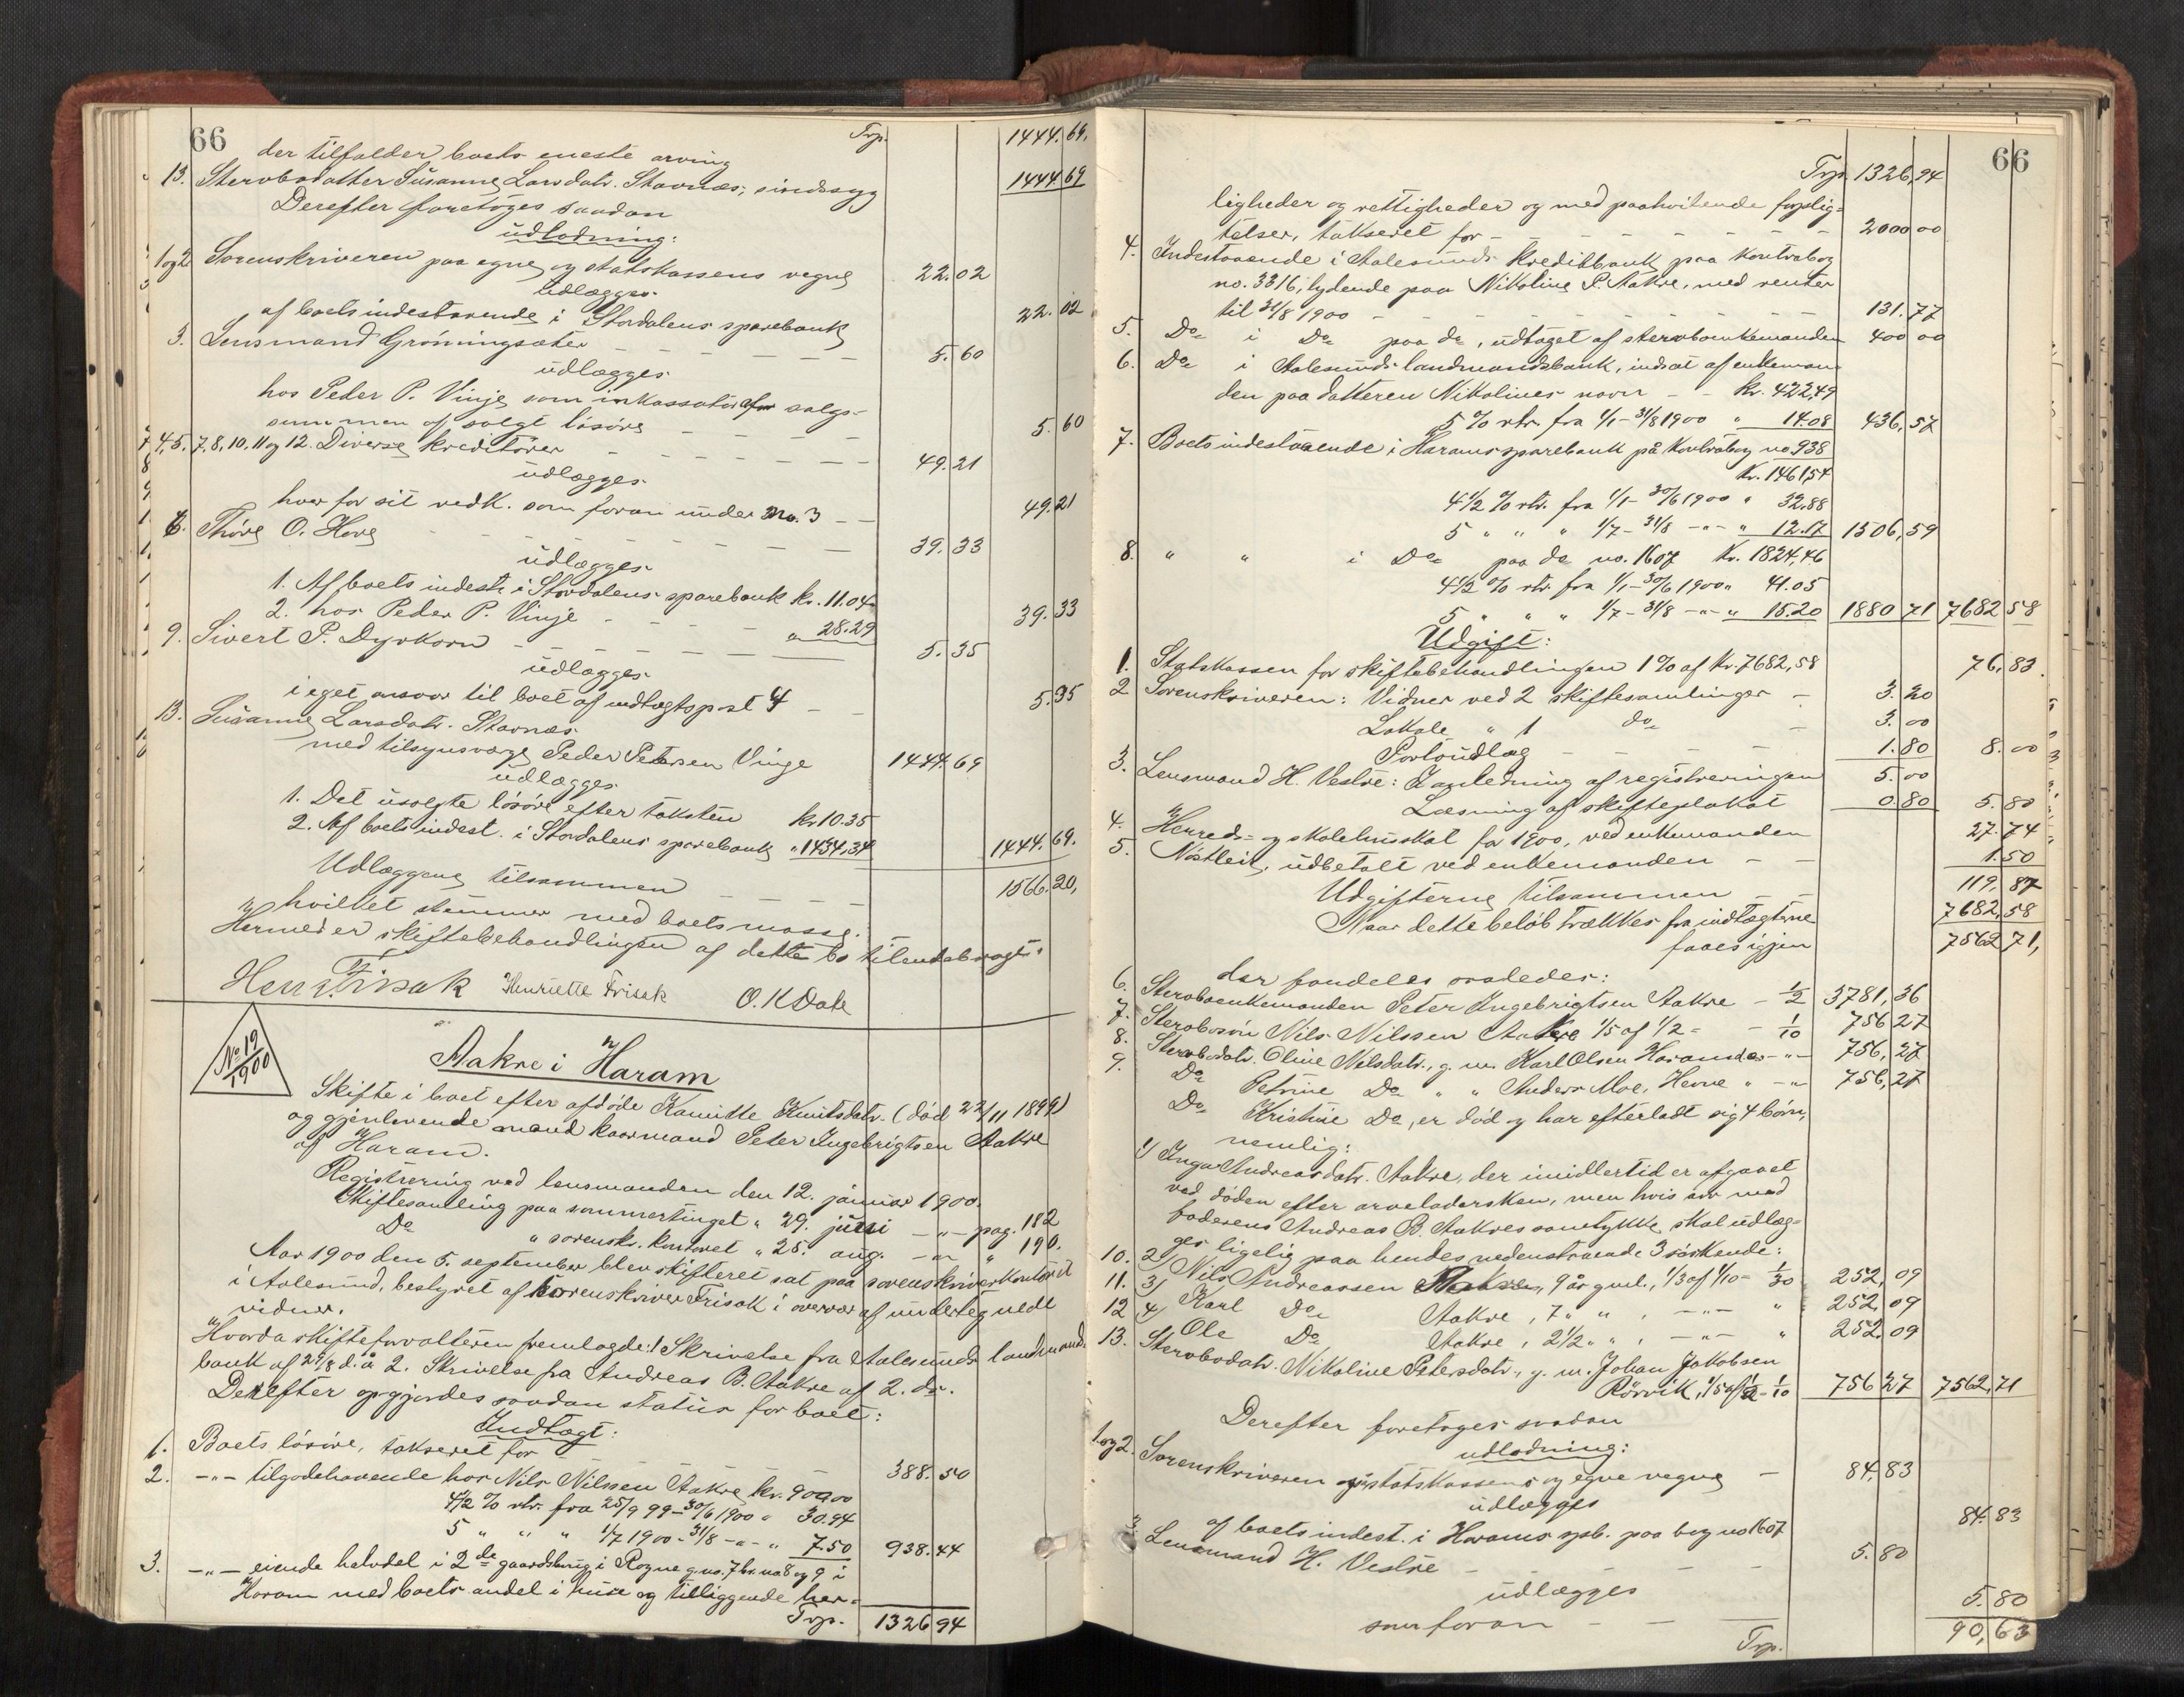 66
Trp. 1444.69.
der tilfalder boets eneste arving
13. Stervbodatter Susanne Larsdatr. Stavnæs, sindssyg 1444 69
Derefter foretoges saadan
udlodning:
1og2 Sorenskriveren paa egne og statskassens vegne 22.02
udlægges
af boets indestaaende i Stordalens sparebank 22.02
3. Lensmand Gröningsæter 5.60
udlægges
hos Peder P. Vinje som inkassator for salgs-
summen af solgt lösöre 5.60
4, 5, 7, 8, 10, 11 og 12. Diverse kreditorer 49.21
udlægges
hver for sit vedk. som foran under no. 3 49.21
6. Thöre O. Hove 39.33
udlægges
1. Af boets indest. i Stordalens sparebank kr. 11.04
2. hos Peder P. Vinje " 28.29 39.33
9. Sivert P. Dyrkorn 5.35
udlægges
i eget ansvar til boet af indtægtspost 4 5.35
13. Susanne Larsdatr. Stavnæs
med tilsynsværge Peder Petersen Vinge 1444.69
udlægges
1. Det usolgte lösöre efter taksten kr. 10.35
2. Af boets indest. i Stordalens sparebank " 1434.34 1444.69.
Udlæggene tilsammen 1566.20,
hvilket stemmer med boets masse.
Hermed er skiftebehandlingen af dette bo tilendebragt.
Henr. Frisak Henriette Frisak O. K Dale
No 19
1900
Aakre i Haram
Skifte i boet efter afdöde Kamille Knutsdatr. (död 22/11 1899)
og gjenlevende mand kaarmand Peter Ingebrigtsen Aakre
af Haram.
Registrering ved lensmanden den 12. januar 1900.
Skiftesamling paa sommertinget " 29. juni -"- pag. 182
Do " sorenskr. kontoret " 25. aug. -"- " 190.
Aar 1900 den 5. september blev skifteret sat paa sorenskriverkontoret
i Aalesund, bestyret af sorenskriver Frisak i overvær af undertegnede
vidner.
Hvorda skifteforvalteren fremlagde: 1. Skrivelse fra Aalesunds landmands
bank af 29/8 d. å 2. Skrivelse fra Andreas B. Aakre af 2. ds.
Derefter opgjordes saadan status for boet:
Indtægt:
1. Boets lösöre, takseret for 388.50
2. -"- tilgodehavende hos Nils Nilssen Aakre kr. 900,00
4 1/2 % rtr. fra 25/9 99 - 30/6 1900 " 30.94
5 " " " 1/7 1900 - 31/8 -"- " 7.50 938.44
3. -"- eiende halvdel i 2de gaardsbrug i Rogne g. no. 7 br. no 8 og 9 i
Haram med boets andel i huse og tilliggende her-
Trp. 1326 94
66
Trp. 1326,94
ligheder og rettigheder og med paahvilende forplig-
telser, takseret for 2000 00
4. Indestaaende i Aalesunds kreditbank paa kontrabog
no. 3316, lydende paa Nikoline P. Aakre, med renter
til 31/8 1900 131.77
5. Do i Do paa do, udtaget af stervboenkemanden 400 00
6. Do i Aalesunds landmandsbank, indsat af enkeman-
den paa datteren Nikolines navn kr. 422,49
5 % rtr. fra 1/1 - 31/8 1900 " 14.08 436,57
7. Boets indestaaende i Harams sparebank på kontrabog no 938
kr. 1461,54
4 1/2 % rtr. fra 1/1 - 30/6 1900 " 32.88
5 " " " 1/7 - 31/8 -"- " 12.17 1506,59
8. " " i Do paa do no. 1607 kr. 1824,46
4 1/2 % rtr. fra 1/1 - 30/6 1900 " 41.05
5 " " " 1/7 - 31/8 -"- " 15.20 1880 71 7682 58
Udgift:
1. Statskassen for skiftebehandlingen 1 % af kr. 7682,58 76,83.
2 Sorenskriveren: Vidner ved 2 skiftesamlinger 3.20
Lokale " 1 do 3.00
Portoudlæg 1.80 8.00
3. Lensmand H. Vestre: I anledning af registreringen 5.00
Læsning af skifteplakat 0.80 5.80
4. Herreds- og skolehusskat for 1900, ved enkemanden 27.74
5. Nöstleie, udbetalt ved enkemanden 1.50
Udgifterne tilsammen 119,87
Naar dette belöb trækkes fra indtægterne 7682,58
faaes igjen 7562 71,
der fordeles saaledes:
6. Stervboenkemanden Peter Ingebrigtsen Aakre - 1/2 3781,36
7. Stervbosön Nils Nilssen Aakre 1/5 af 1/2 = 1/10 756 27
8. Stervbodatr. Oline Nilsdatr., g. m. Karl Olsen Haramnes -"- 756,27
9. Do Petrine Do " " Anders Moe, Herne " -"- 756,27
Do Kristine Do, er död og har efterladt sig 4 börn,
nemlig:
1) Inga Andreasdatr. Aakre, der imidlertid er afgaaet
ved döden efter arveladersken, men hvis arv med
faderens Andreas B. Aakres samtykke skal udlæg-
ges ligelig paa hendes nedenstaaende 3 söskende:
10. 2) Nils Andreassen Aakre, 9 år gml., 1/3 af 1/10 = 1/30 252,09
11. 3) Karl Do Aakre, 7 " " , -"- " 252,09
12 4) Ole Do Aakre, 2 1/2 " " , -"- " 252.09
13. Stervbodatr. Nikoline Petersdatr., g. m. Johan Jakobsen
Rörvik, 1/5 af 1/2 = 1/10 756 27 7562,71
Derefter foretoges saadan
udlodning:
1.og2. Sorenskriveren på statskassens og egne vegne 84,83
udlægges
af boets indest. i Harams spb. paa bog no 1607 84.83
3. Lensmand H. Vestre 5.80
udlægges
som foran 5.80
Trp. 90,63